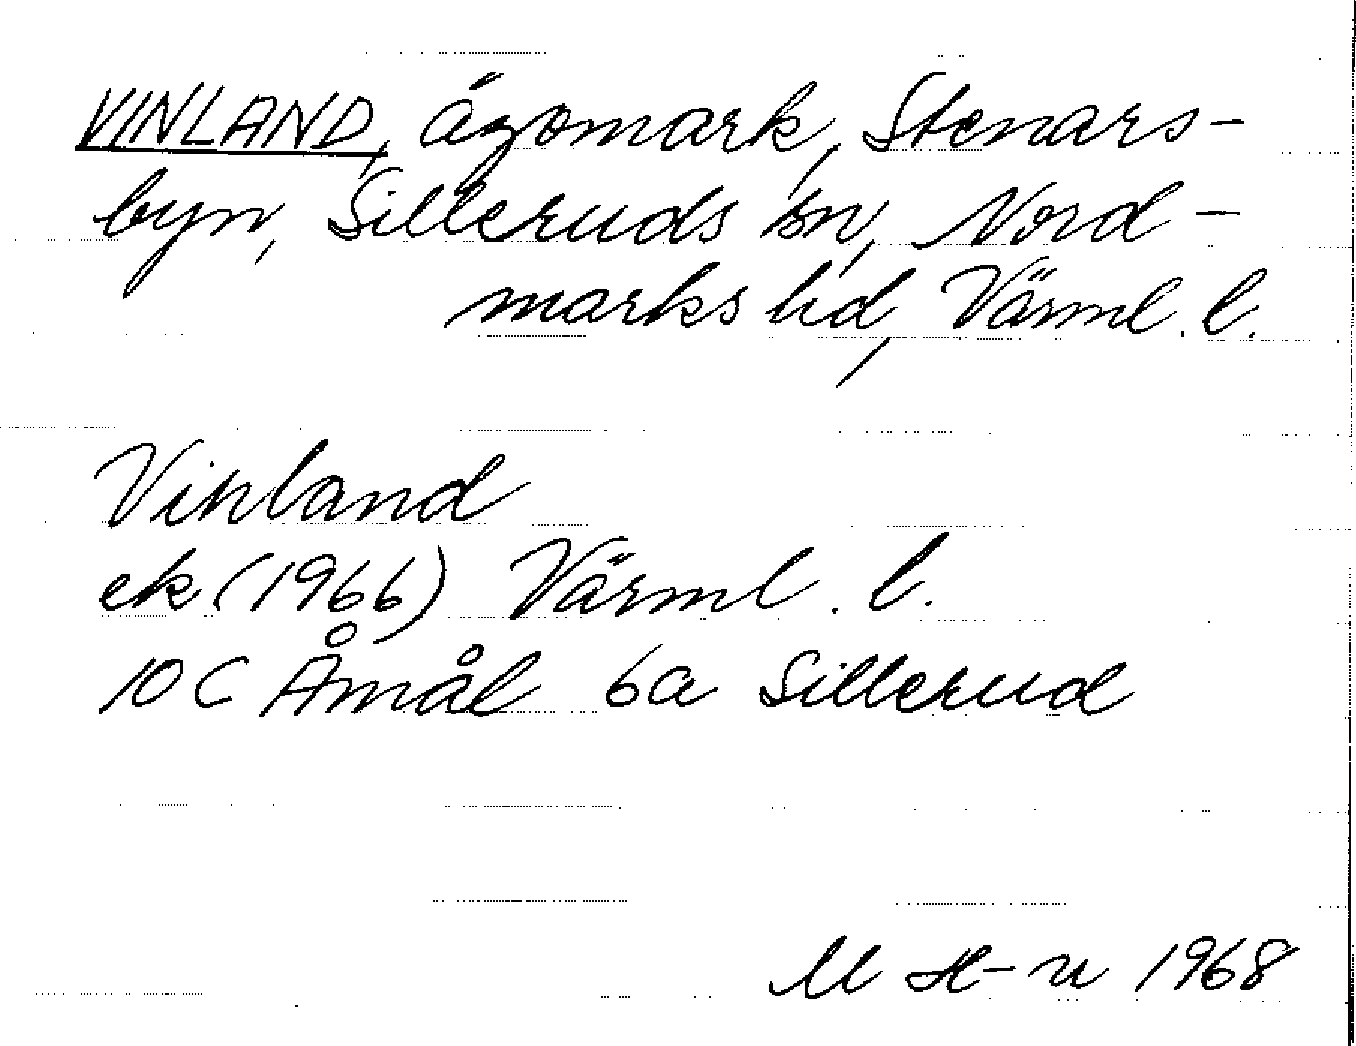 VINLAND, ägomark, Stenars-
byn, Silleruds sn, Nord-
marks hd, Värml. l.
Vinland
ek (1966) Värml. l.
10 C Åmål 6a Sillerud
M H-n 1968